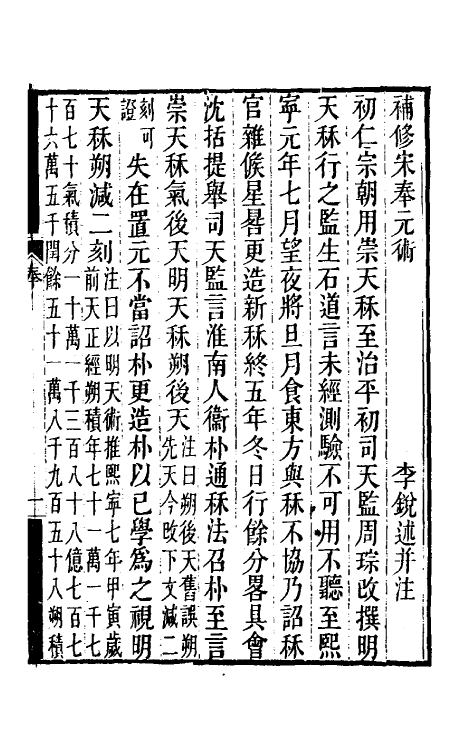 補修宋奉元術
李銳述并注
初仁宗朝用崇天秝至治平初司天監周琮改撰明
天秝行之監生石道言未經測驗不可用不聽至熙
寧元年七月望夜將旦月食東方與秝不協乃詔秝
官雜候星晷更造新秝終五年冬日行餘分畧具會
沈括提舉司天監言淮南人衞朴通秝法召朴至言
崇天秝氣後天明天秝朔後天注曰後天舊誤朔
先天今改下文減二
刻可
證
失在置元不當詔朴更造朴以己學爲之視明
天秝朔減二刻注曰以明天術推熙寧七年甲寅歲
前天正經朔積年七十一萬一千七
百七十氣積分一十萬一千三百八十八億七百七
十六萬五千閏餘五十一萬八千九百五十八朔積
奉
一